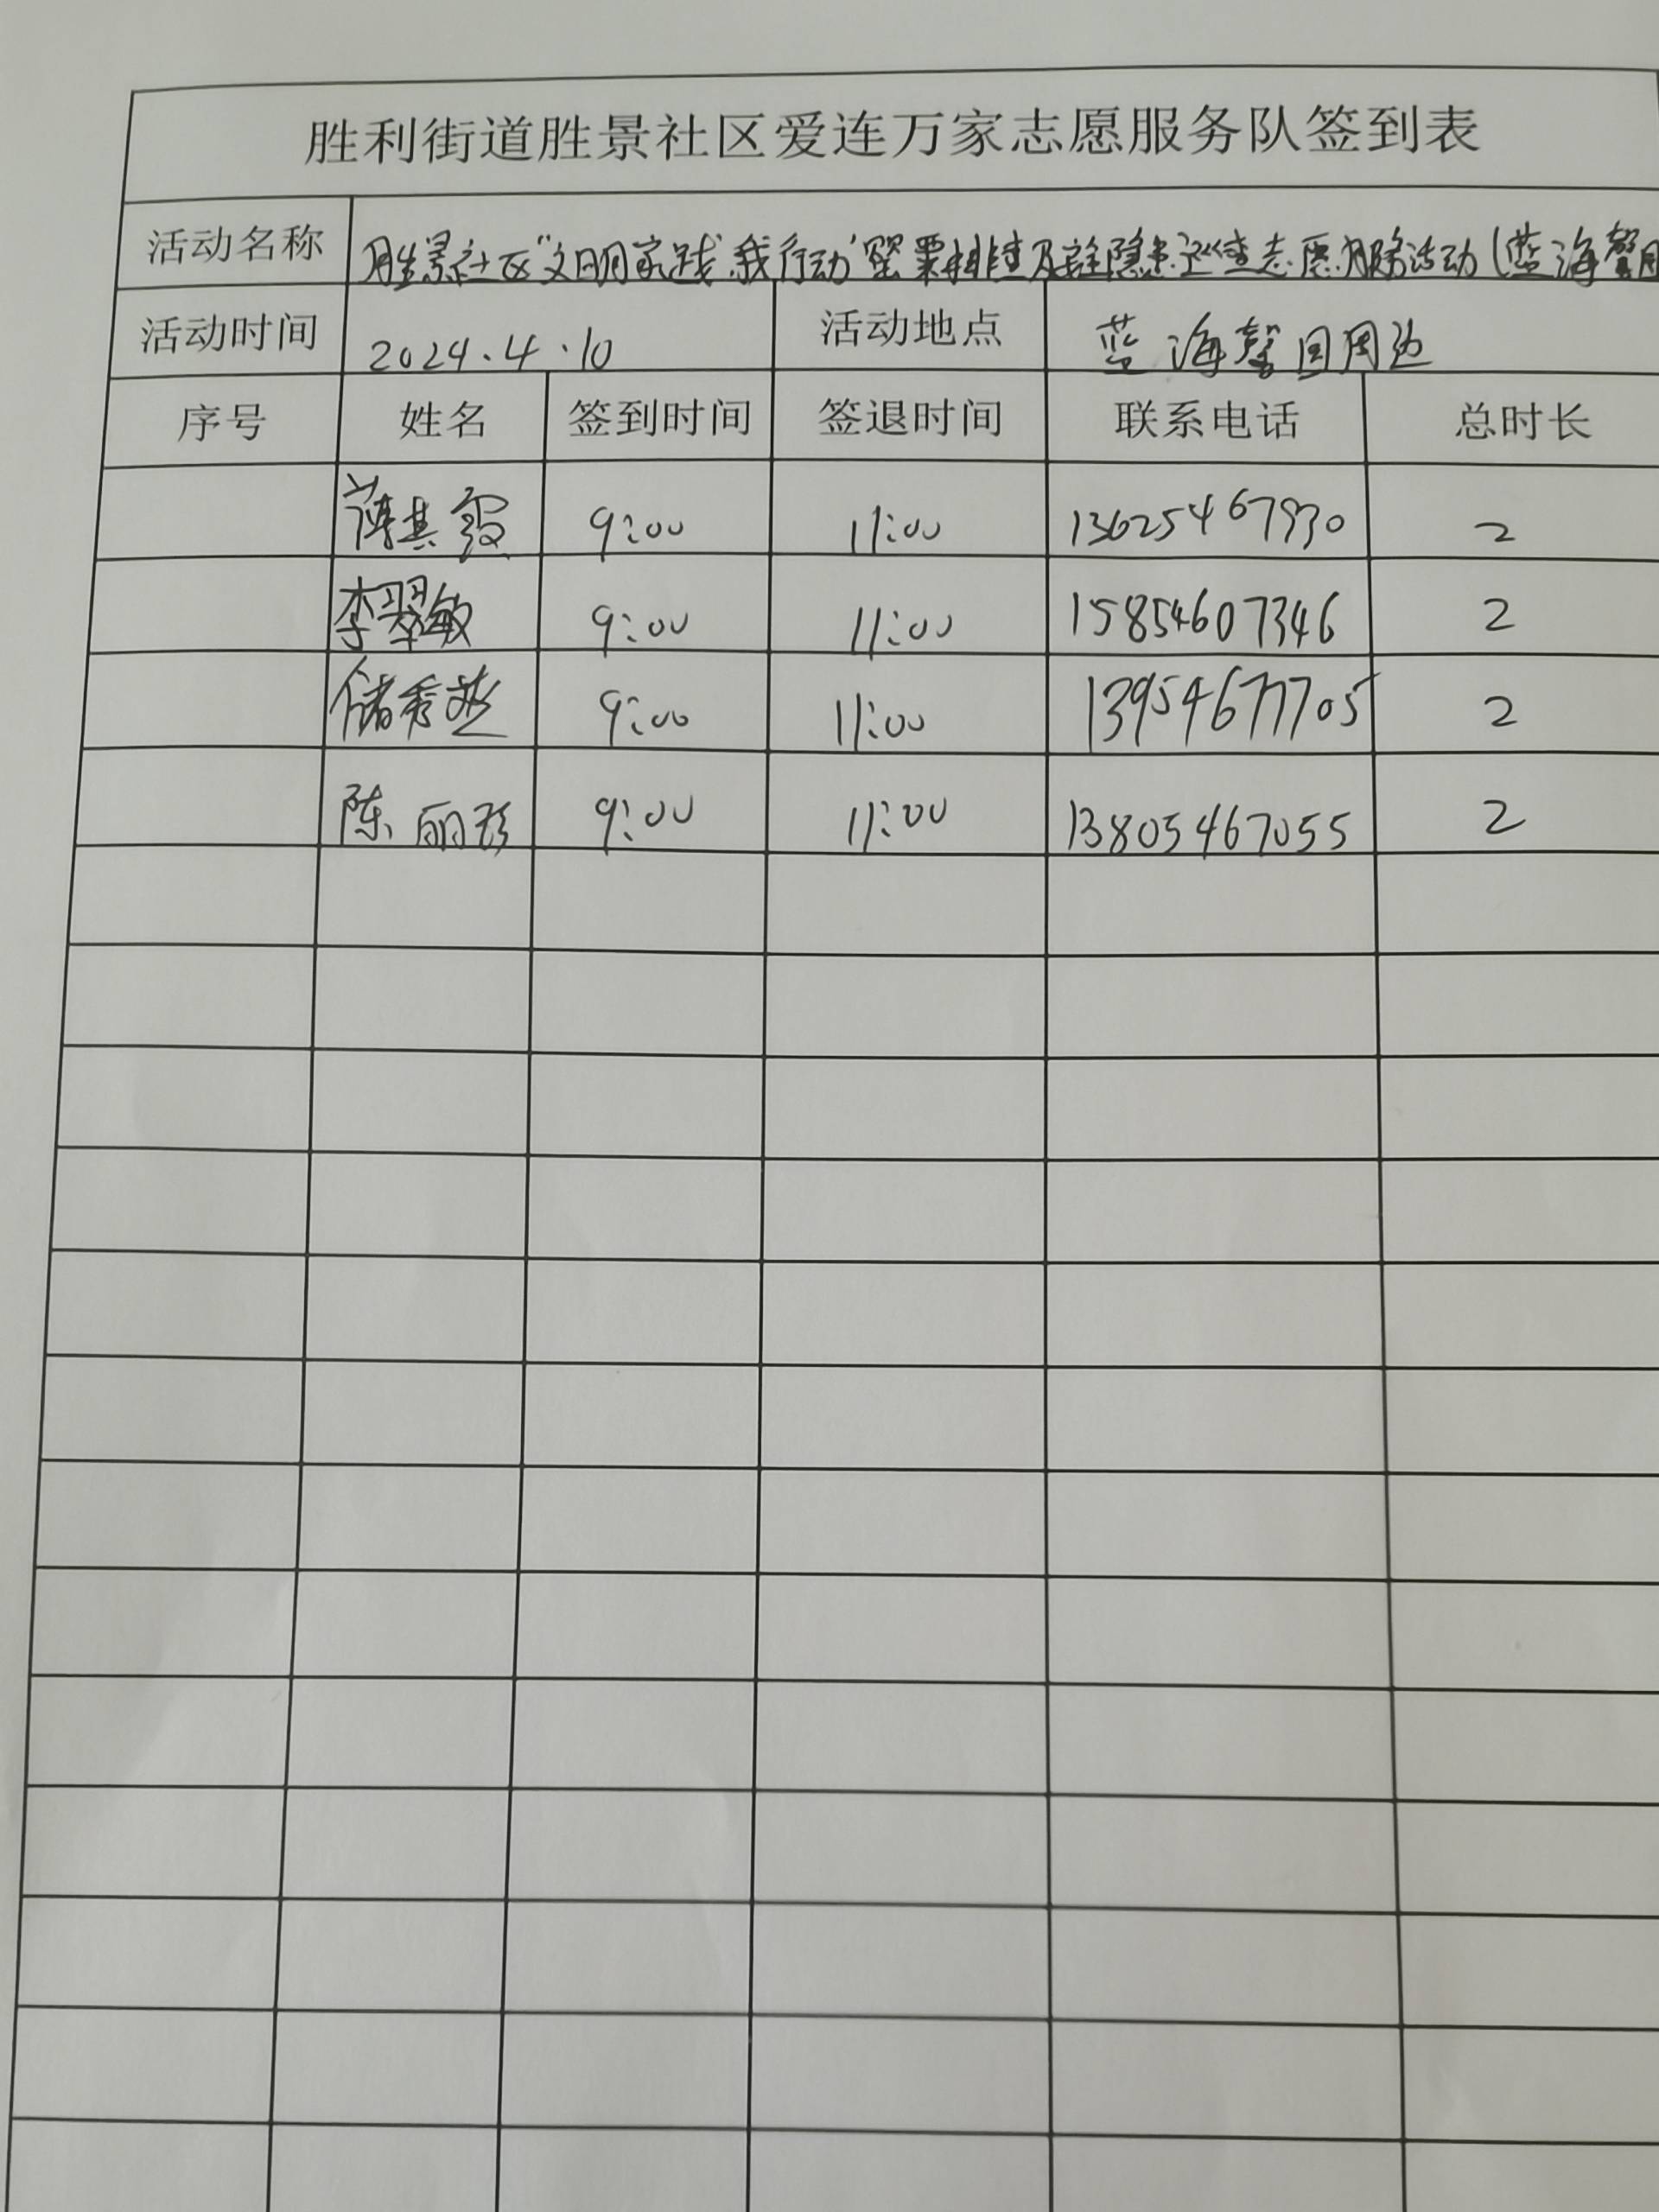 胜利街道胜景社区爱连万家志愿服务队签到表
活动名称 胜景社区“文明实践 我行动”罂粟排查及安全隐患巡查志愿服务活动(蓝海馨园
活动时间 2024.4.10 活动地点 蓝海馨园周边
序号 姓名 签到时间 签退时间 联系电话 总时长
薄其霞 9:00 11:00 13625467930 2
李翠敏 9:00 11:00 15854607346 2
储秀燕 9:00 11:00 13954677705 2
陈丽珍 9:00 11:00 13805467055 2